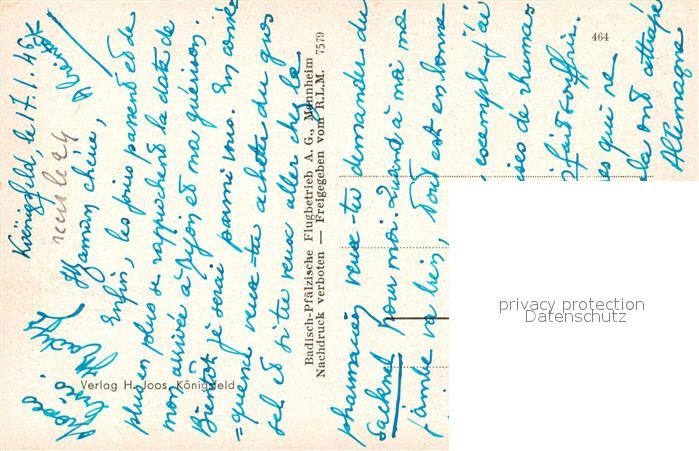 Königsfeld, le 17.1.46
Maman chérie,
Enfin, les jours passent et de
plus en plus se rapproche la date de
mon arrivée à Dijon et ma guérison.
Bientôt je serai parmi vous. En
-quence veux-tu acheter du gros
sel et si tu veux aller chez le
Badisch-Pfälzische Flugbetrieb A. G., Mannheim
Nachdruck verboten — Freigegeben vom R.L.M. 7579
pharmacien veux-tu demander du
pour moi. Quand à moi ma
jambe va bien, tout est en bonne
exemple j'ai
de rhumas
fait souffrir.
es qui ne
ont attrapé
Allemagne
464
Verlag H. Joos, Königsfeld
privacy protection
Datenschutz